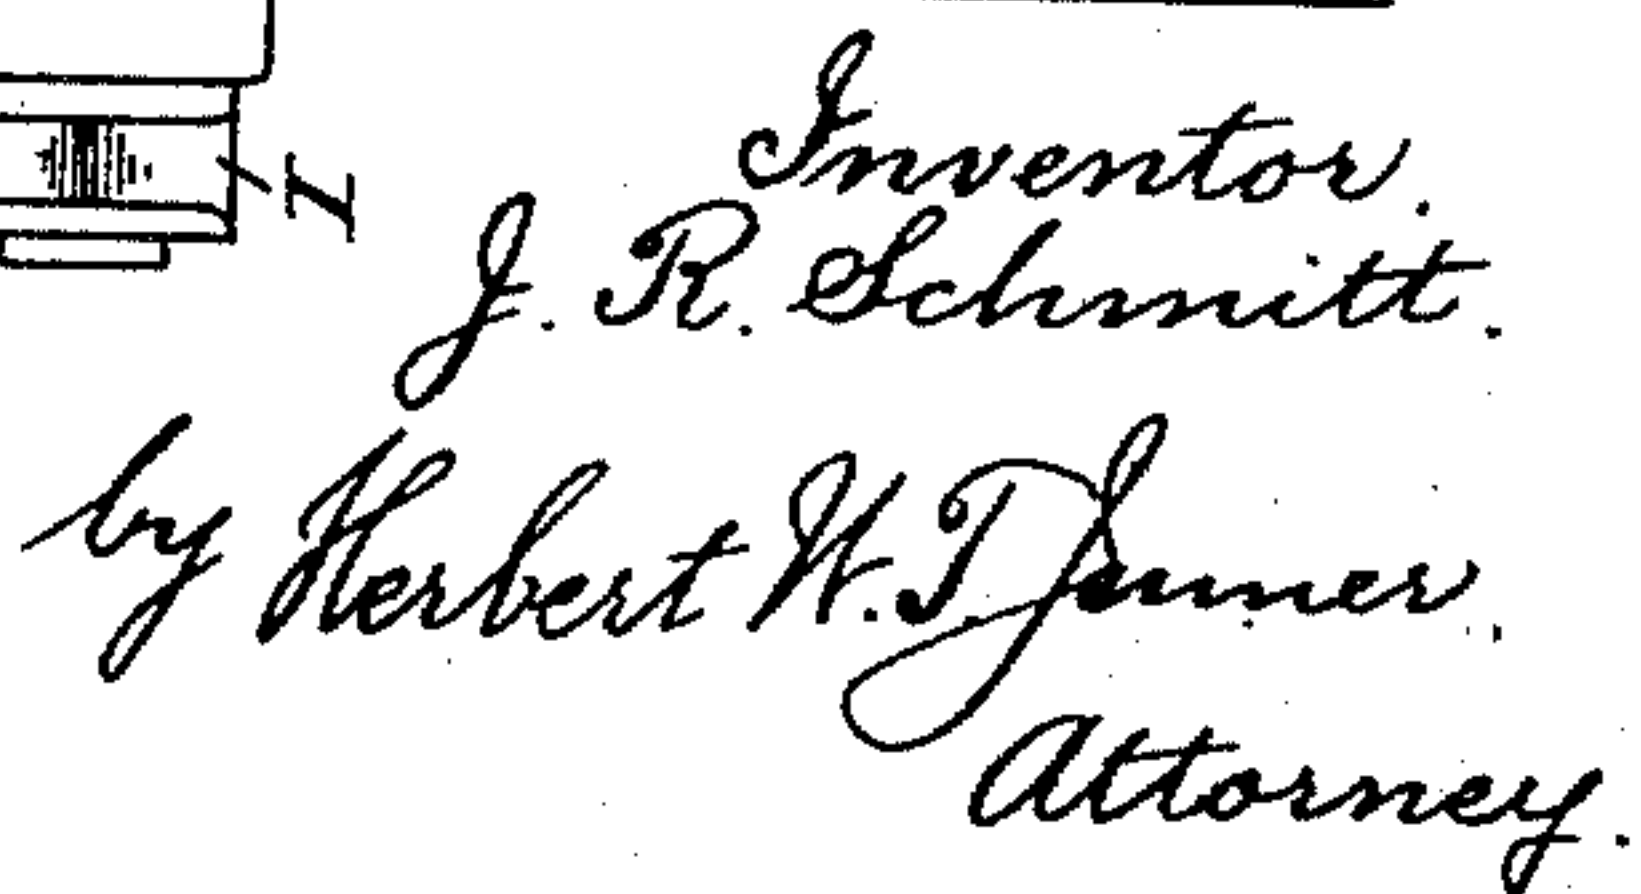 Inventor.
J. R. Schmitt.
by Herbert W. T. Jenner.
Attorney.